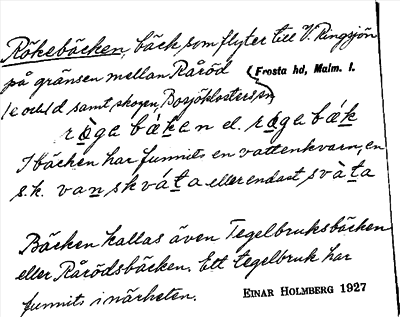 Rökebäcken, bäck, som flyter till V. Ringsjön
på gränsen mellan Råröd
(Frosta hd, Malm. l.
1 e och 1 d samt skogen, Bosjöklosters sn)
rø̀gabǽkan el. rø̀gabǽk
I bäcken har funnits en vattenkvarn, en
s.k. vanskváta eller endast svàta
Bäcken kallas även Tegelbruksbäcken
eller Rårödsbäcken. Ett tegelbruk har
funnits i närheten.
EINAR HOLMBERG 1927